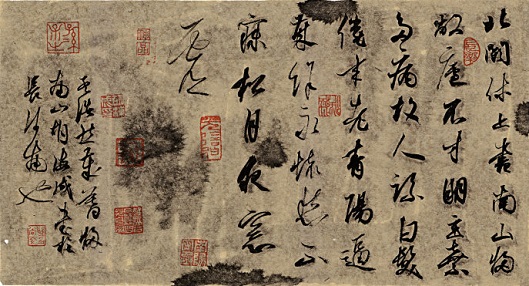 北闕休上書南山歸
敝廬不才明主棄
多病故人疏白髮
催年老青陽逼
歲除永懷愁不
寐松月夜窗
虛
孟浩然歲暮歸
南山